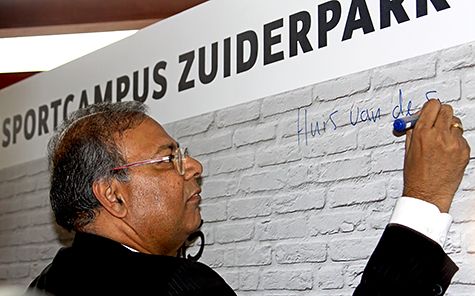 SPORTCAMPUS ZUIDERPARK
Huis van de s